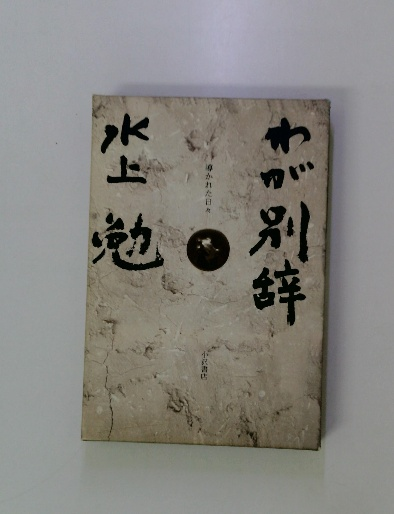 わが別辞
導かれた日々
水上 勉
小沢書店